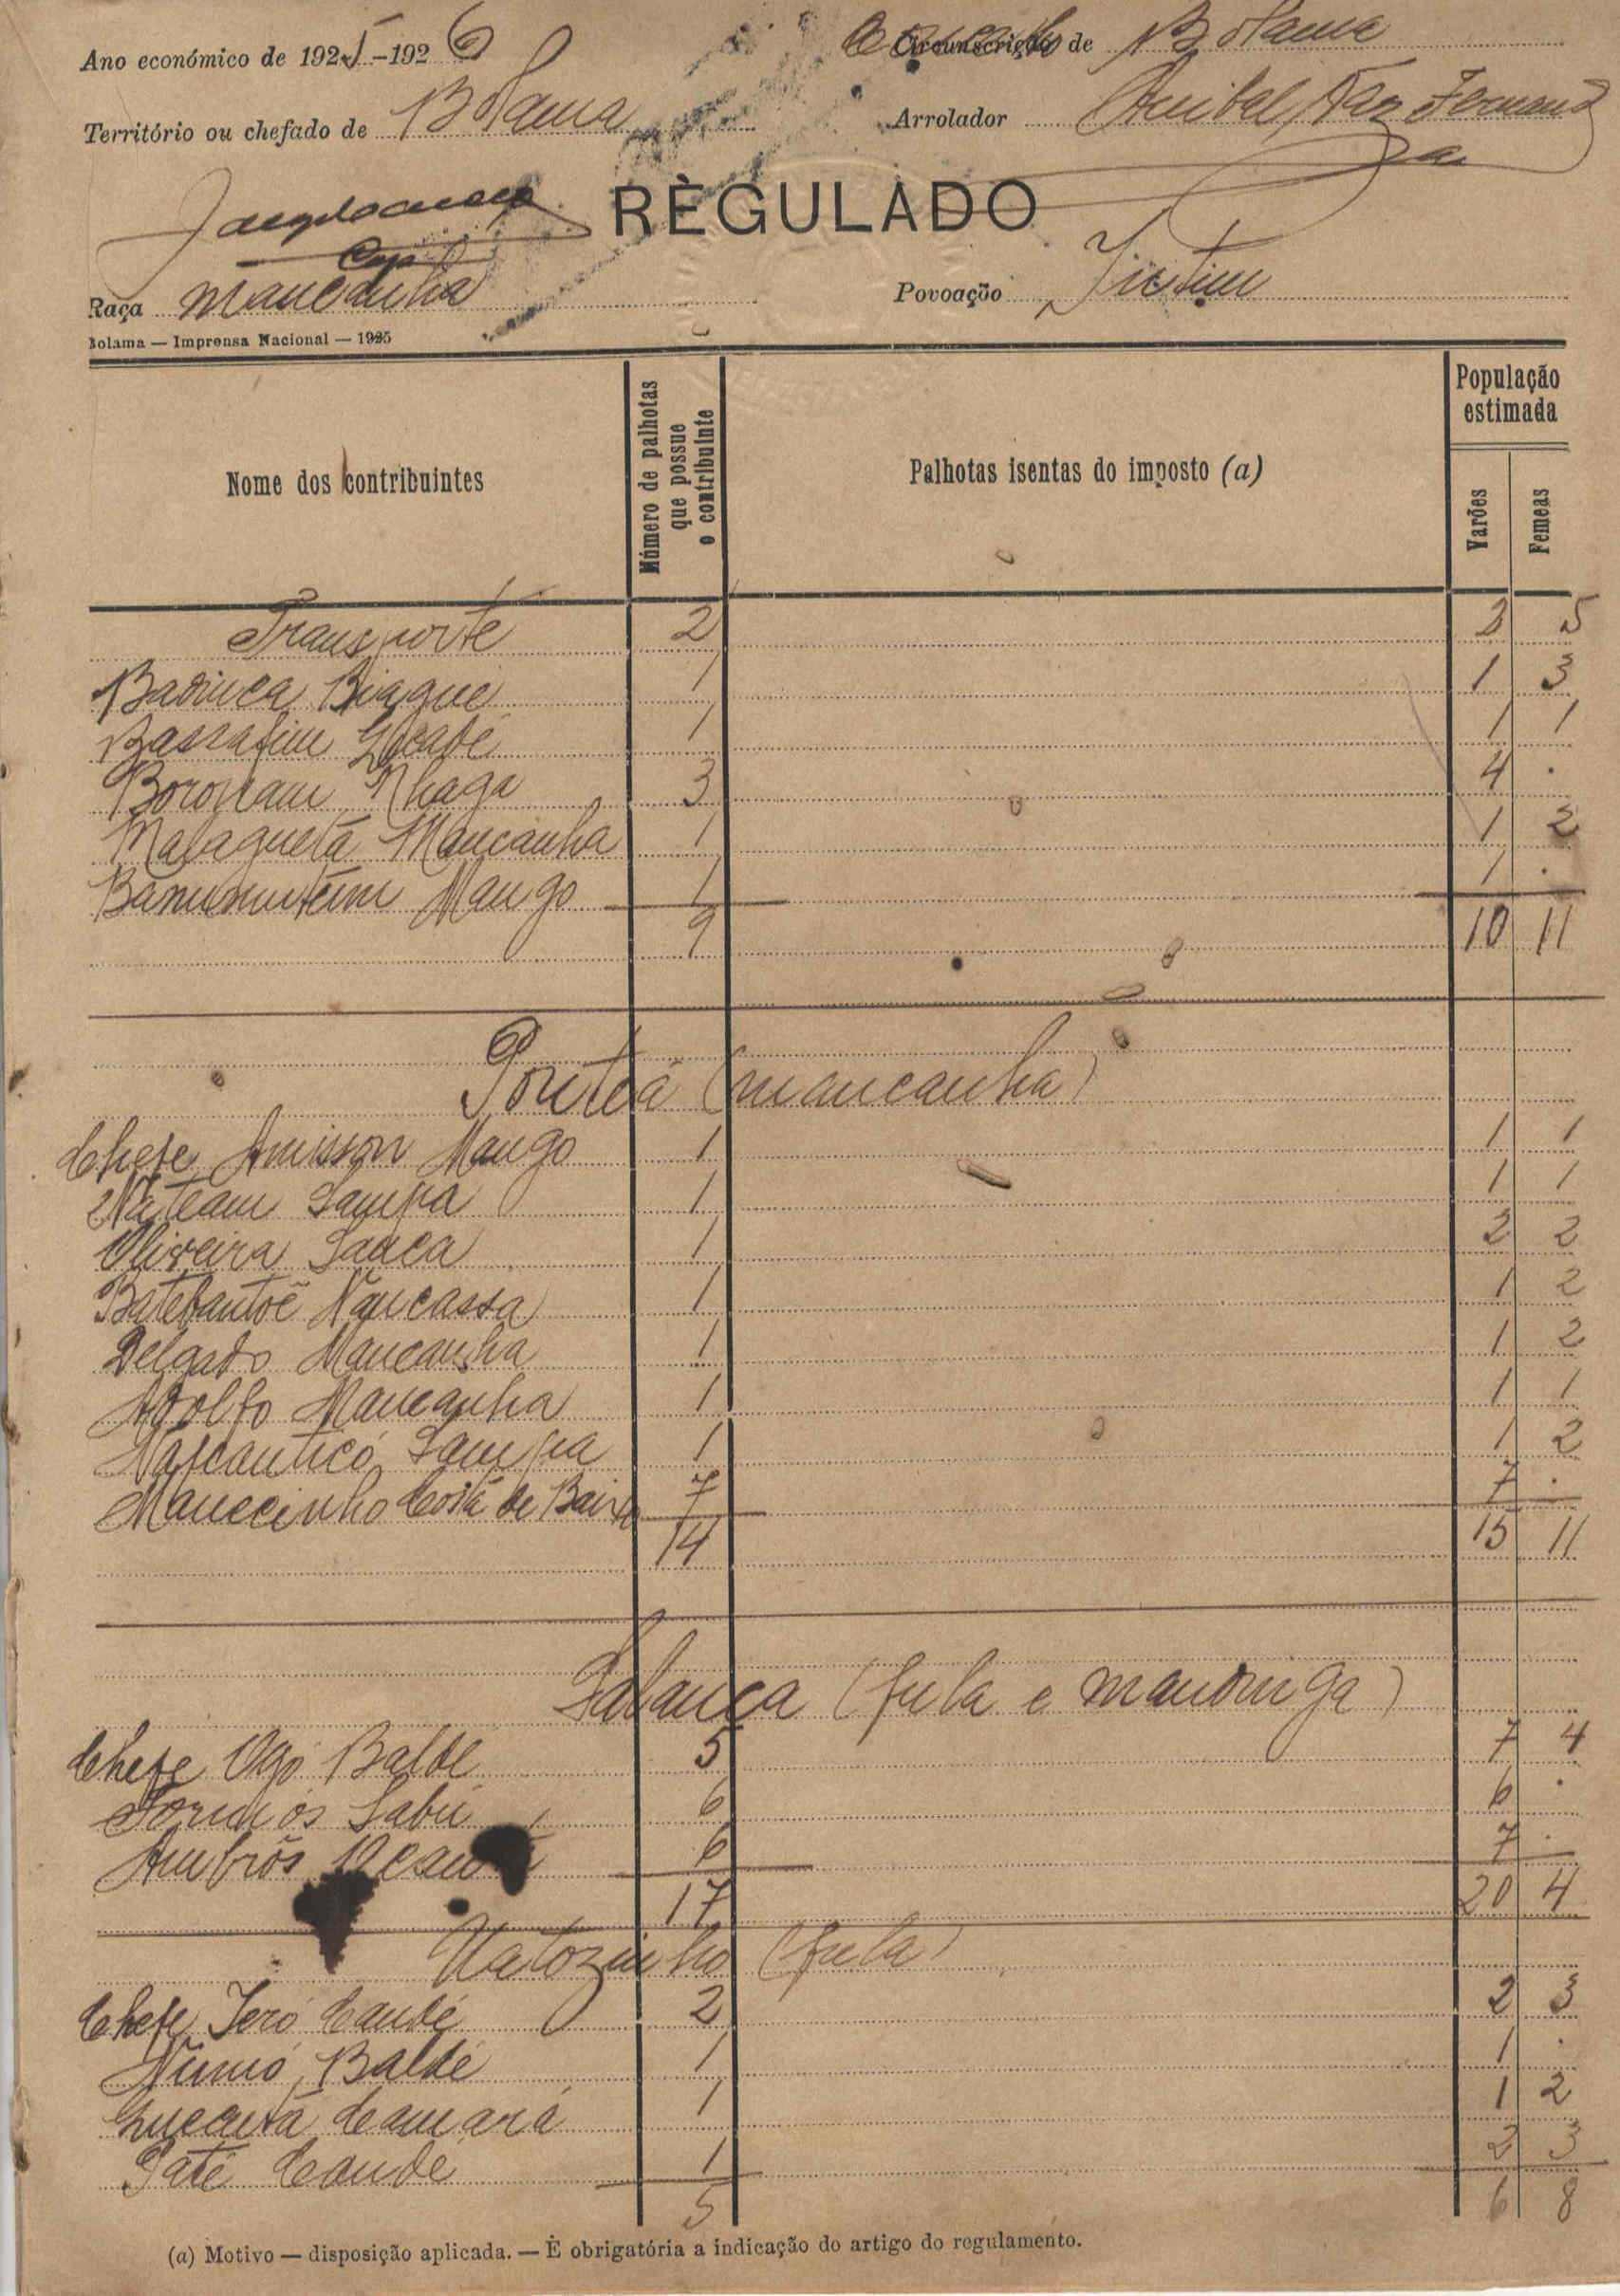 Ano económico de 1925-1926
Concelho Circunscrição de Bolama
Território ou chefado de Bolama
Arrolador Anibal Vaz Fernandes
RÈGULADO
Raça Mancanha
Povoação
Bolama — Imprensa Nacional — 1925
Nome dos contribuintes
Número de palhotas que possue o contribuinte
Palhotas isentas do imposto (a)
População estimada
Varões
Femeas
Transporte 2 2 5
Badinca Biague 1 1 3
Bassafim 1 1 1
Nhaga 3 4 .
Malagueta Mancanha 1 1 2
Mango 1 1 .
9 10 11
Pontea (mancanha)
Chefe Amisson Mango 1 1 1
Sampa 1 1 1
Oliveira Sanca 1 2 2
Nancassa 1 1 2
Delgado Mancanha 1 1 2
Adolfo Mancanha 1 1 1
Sampa 1 1 2
Manecinho Costa de Baixo 7 7 .
14 15 11
(fula e mandinga)
Chefe Baldé 5 7 4
6 6 .
6 7 .
17 20 4
(fula)
Chefe Jeró Candé 2 2 3
Baldé 1 1 .
Camará 1 1 2
Paté Candé 1 2 3
5 6 8
(a) Motivo — disposição aplicada. — È obrigatória a indicação do artigo do regulamento.